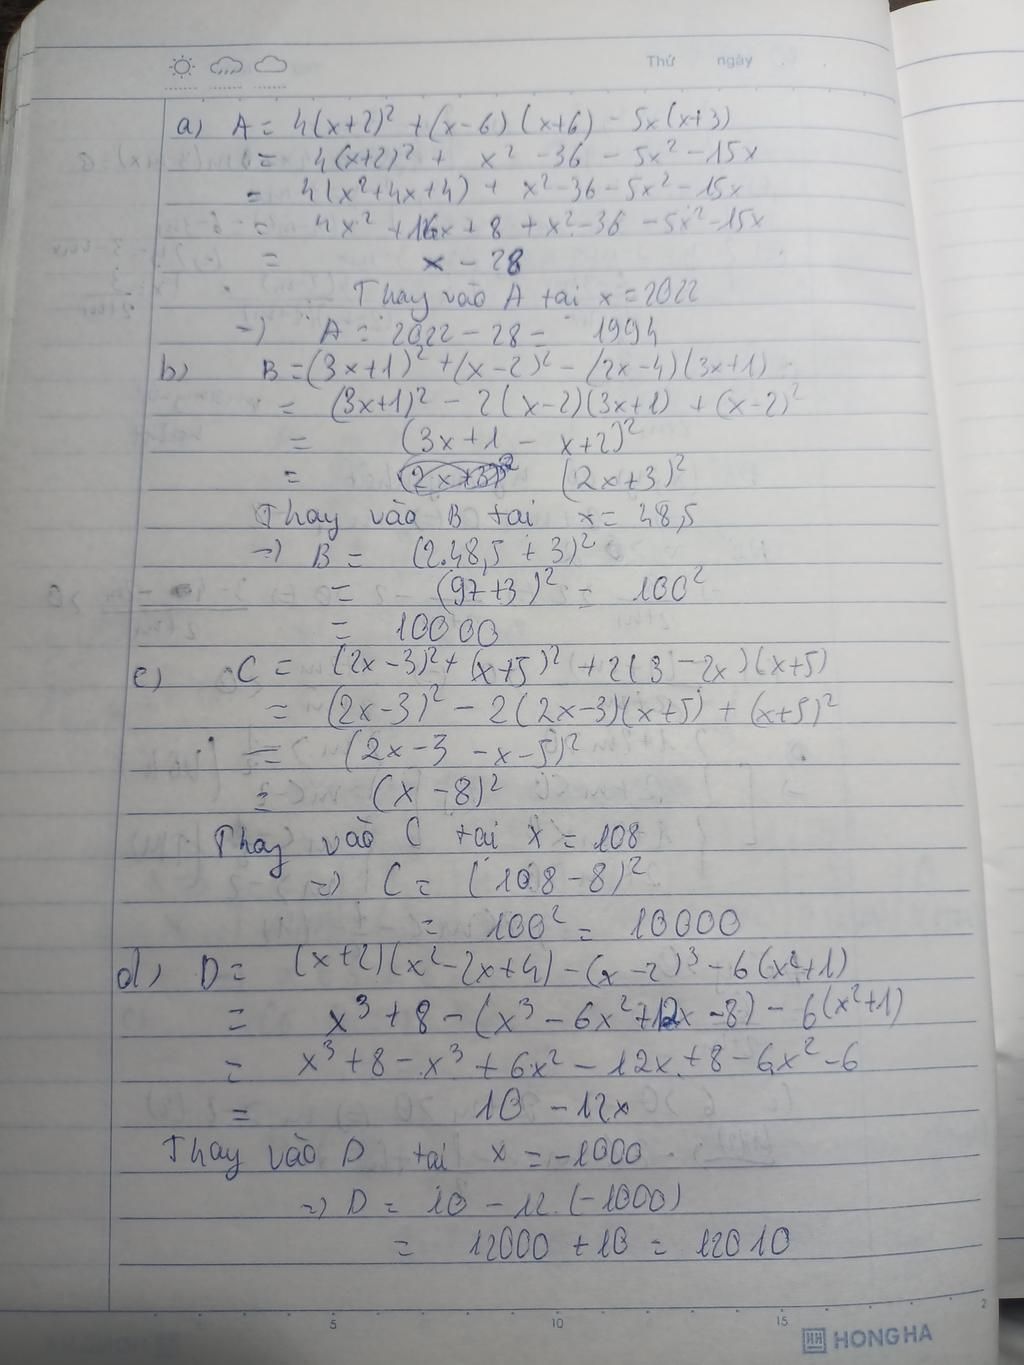 Thứ ngày
a) A = 4(x+2)² + (x-6)(x+6) - 5x(x+3)
= 4(x+2)² + x² - 36 - 5x² - 15x
= 4(x²+4x+4) + x²-36-5x²-15x
= 4x² + 16x + 8 + x²-36 -5x²-15x
= x - 28
Thay vào A tai x = 2022
=) A = 2022 - 28 = 1994
b) B = (3x+1)² + (x-2)² - (2x-4)(3x+1)
= (3x+1)² - 2(x-2)(3x+1) + (x-2)²
= (3x+1 - x+2)²
= (2x+3)² (2x+3)²
Thay vào B tai x = 48,5
=) B = (2.48,5 + 3)²
= (97+3)² = 100²
= 10000
c) C = (2x-3)² + (x+5)² + 2(3-2x)(x+5)
= (2x-3)² - 2(2x-3)(x+5) + (x+5)²
= (2x-3 -x-5)²
= (x-8)²
Thay vào C tai x = 108
=) C = (108-8)²
= 100² = 10000
d) D = (x+2)(x²-2x+4) - (x-2)³ - 6(x²+1)
= x³ + 8 - (x³ - 6x² + 12x - 8) - 6(x²+1)
= x³ + 8 - x³ + 6x² - 12x + 8 - 6x² - 6
= 10 - 12x
Thay vào D tai x = -1000
=) D = 10 - 12.(-1000)
= 12000 + 10 = 12010
5 10 15 2
HONG HA